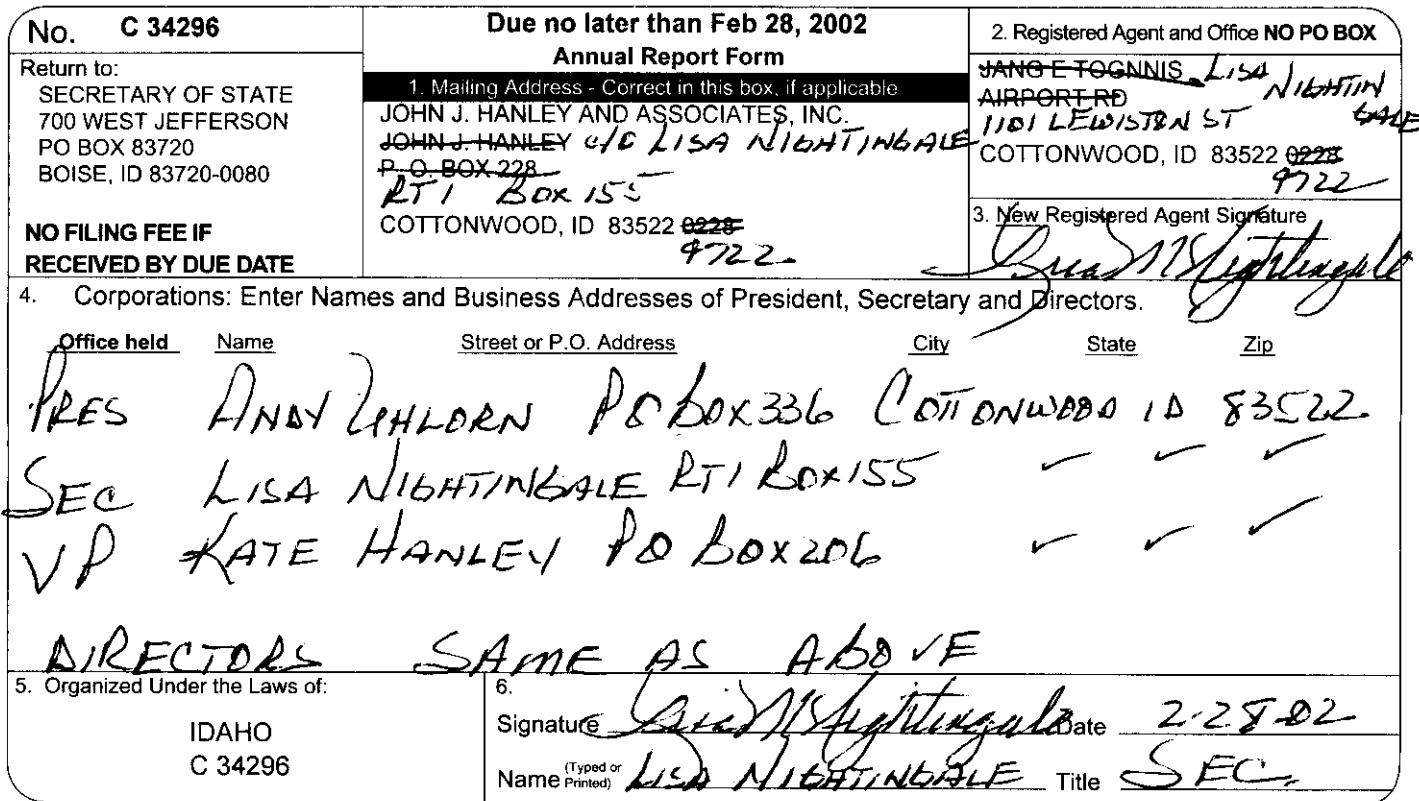 No. C 34296
Return to:
SECRETARY OF STATE
700 WEST JEFFERSON
PO BOX 83720
BOISE, ID 83720-0080
NO FILING FEE IF
RECEIVED BY DUE DATE
Due no later than Feb 28, 2002
Annual Report Form
1. Mailing Address - Correct in this box, if applicable
JOHN J. HANLEY AND ASSOCIATES, INC.
JOHN J. HANLEY c/o LISA NIGHTINGALE
P. O. BOX 228
RT 1 BOX 155
COTTONWOOD, ID 83522 0228
9722
2. Registered Agent and Office NO PO BOX
JANG E TOGNNIS LISA NIGHTIN
AIRPORT RD GALE
1101 LEWISTON ST
COTTONWOOD, ID 83522 0228
9722
3. New Registered Agent Signature
Lisa M Nightingale
4. Corporations: Enter Names and Business Addresses of President, Secretary and Directors.
Office held Name Street or P.O. Address City State Zip
PRES ANDY UHLORN PO BOX 336 COTTONWOOD ID 83522
SEC LISA NIGHTINGALE RT 1 BOX 155 ✓ ✓ ✓
VP KATE HANLEY PO BOX 206 ✓ ✓ ✓
DIRECTORS SAME AS ABOVE
5. Organized Under the Laws of:
IDAHO
C 34296
6.
Signature Lisa M Nightingale Date 2-28-02
Name (Typed or Printed) LISA NIGHTINGALE Title SEC.